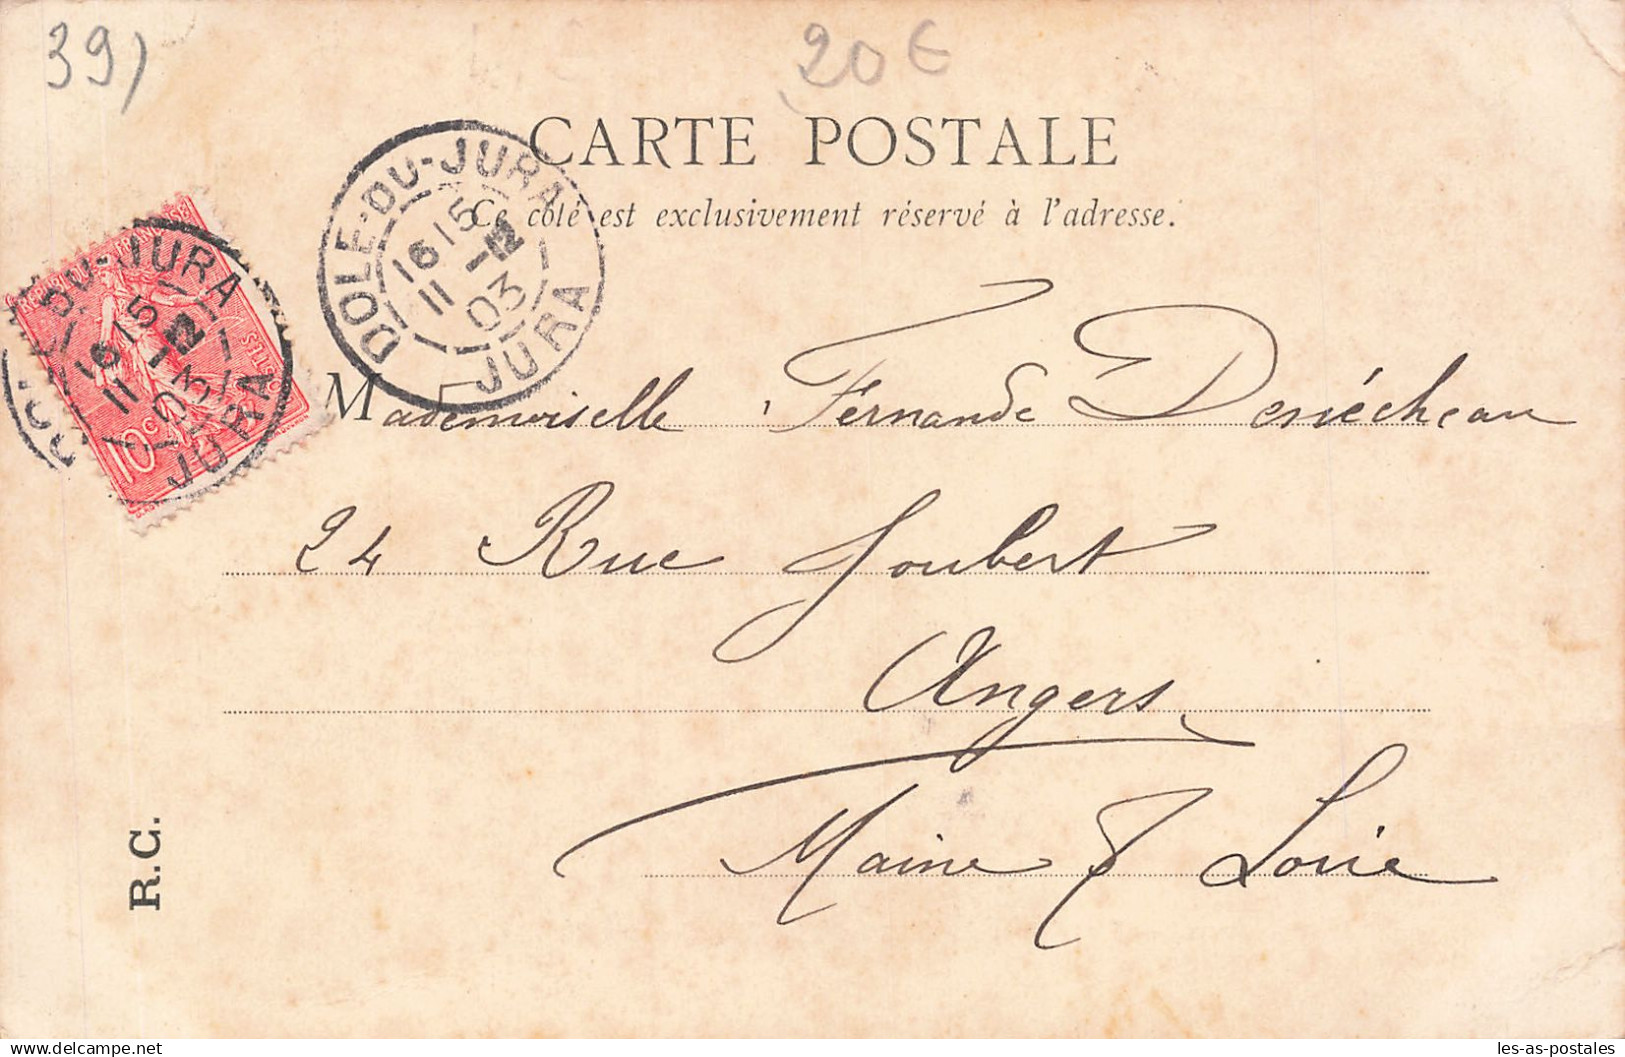 39)
20€
CARTE POSTALE
Ce côté est exclusivement réservé à l'adresse.
DOLE-DU-JURA
16 15
11 -12
03
JURA
RÉPUBLIQUE FRANÇAISE
POSTES
10c
DU-JURA
16 15
11 -12
03
JURA
Mademoiselle Fernande
24 Rue Joubert
Angers
Maine & Loire
R.C.
les-as-postales